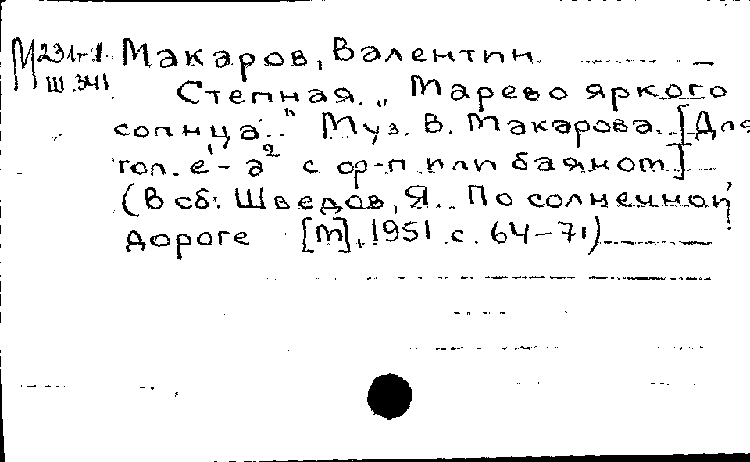 М 231-1 Макаров, Валентин
Ш.341
Степная. „Марево яркого
солнца.." Муз. В. Макарова. [Для
гол. e¹-a² с ф-п или баяном]
(В сб: Шведов, Я. По солнечной
дороге [М], 1951 с. 64-71)